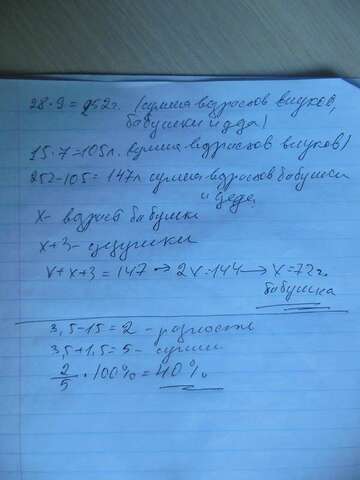 28·9=252г. (сумма возрастов внуков,
бабушки и деда)
15·7=105л. (сумма возрастов внуков)
252-105=147л сумма возрастов бабушки
и деда,
x- возраст бабушки
x+3- дедушки
x+x+3=147 → 2x=144 → x=72г.
бабушка
3,5-15=2 - разность
3,5+1,5=5- сумма
2/5 · 100% = 40%